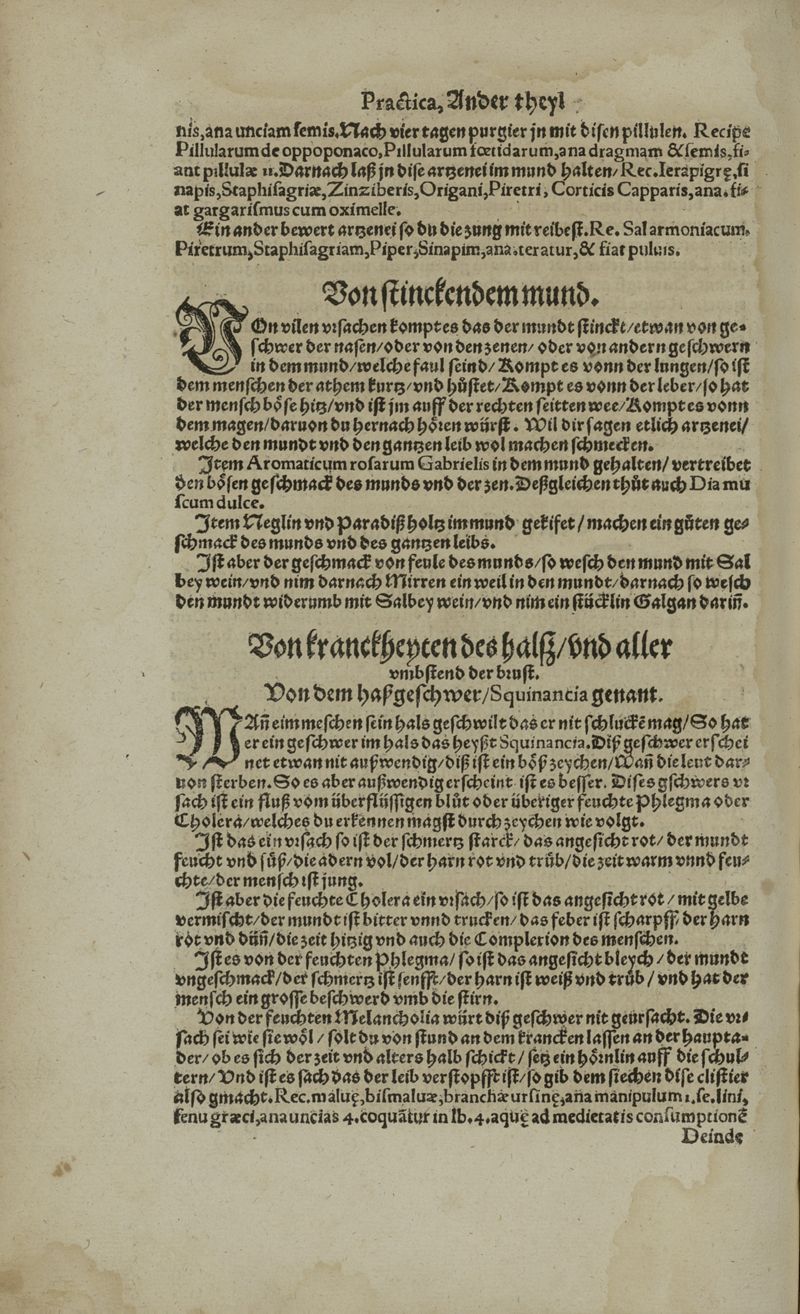 Practica, Ander theyl
nis, ana unciam semis. Nach vier tagen purgier jn mit disen pillulen. Recipe
Pillularum de oppoponaco, Pillularum fœtidarum, ana dragmam & semis, fi-
ant pillulæ 11. Darnach laß jn dise artzenei im mund halten/ Rec. Ierapigrę, si
napis, Staphisagriæ, Zinziberis, Origani, Piretri, Corticis Capparis, ana. fi-
at gargarismus cum oximelle.
Ein ander bewert artzenei so du die zung mit reibest. Re. Sal armoniacum,
Piretrum, Staphisagriam, Piper, Sinapim, ana. teratur, & fiat puluis.
Von stinckendem mund.
VOn vilen vrsachen kompt es das der mundt stinckt/ etwan von ge-
schwer der nasen/ oder von den zenen/ oder von andern geschwern
in dem mund/ welche faul seind/ Kompt es vonn der lungen/ so ist
dem menschen der athem kurtz/ vnd hůstet/ Kompt es vonn der leber/ so hat
der mensch böse hitz/ vnd ist jm auff der rechten seitten wee/ Kompt es vonn
dem magen/ daruon du hernach hören würst. Wil dir sagen etlich artzenei/
welche den mundt vnd den gantzen leib wol machen schmecken.
Item Aromaticum rosarum Gabrielis in dem mund gehalten/ vertreibet
den bösen geschmack des munds vnd der zen. Deßgleichen thůt auch Dia mu
scum dulce.
Item Neglin vnd Paradiß holtz im mund gekifet/ machen ein gůten ge-
schmack des munds vnd des gantzen leibs.
Ist aber der geschmack von feule des munds/ so wesch den mund mit Sal
bey wein/ vnd nim darnach Mirren ein weil in den mundt/ darnach so wesch
den mundt widerumb mit Salbey wein/ vnd nim ein stücklin Galgan dariñ.
Von kranckheyten des halß/ vnd aller
vmbstend der brust.
Von dem halßgeschwer/ Squinancia genant.
WAñ eim meschen sein hals geschwilt das er nit schluckē mag/ So hat
er ein geschwer im hals das heyßt Squinancia. Diß geschwer erschei
net etwan nit außwendig/ diß ist ein böß zeychen/ Wañ die leut dar-
uon sterben. So es aber außwendig erscheint ist es besser. Dises gschwers vr
sach ist ein fluß vom überflüssigen blůt oder überiger feuchte Phlegma oder
Cholera/ welches du erkennen magst durch zeychen wie volgt.
Ist das ein vrsach so ist der schmertz starck/ das angesicht rot/ der mundt
feucht vnd süß/ die adern vol/ der harn rot vnd trüb/ die zeit warm vnnd feu-
chte/ der mensch ist jung.
Ist aber die feuchte Cholera ein vrsach/ so ist das angesicht rot/ mit gelbe
vermischt/ der mundt ist bitter vnnd trucken/ das feber ist scharpff/ der harn
rot vnd düñ/ die zeit hitzig vnd auch die Complexion des menschen.
Ist es von der feuchten Phlegma/ so ist das angesicht bleych/ der mundt
vngeschmack/ der schmertz ist senfft/ der harn ist weiß vnd trüb/ vnd hat der
mensch ein grosse beschwerd vmb die stirn.
Von der feuchten Melancholia würt diß geschwer nit geursacht. Die vr-
sach sei wie sie wöl/ solt du von stund an dem krancken lassen an der haupta-
der/ ob es sich der zeit vnd alters halb schickt/ setz ein hörnlin auff die schul-
tern/ Vnd ist es sach das der leib verstopfft ist/ so gib dem siechen dise clistier
also gmacht. Rec. maluę, bismaluæ, branchæ ursinę, ana manipulum 1. se. lini,
fenu græci, ana uncias 4. coquātur in lb. 4. aquę ad medietatis consumptionē
Deinde